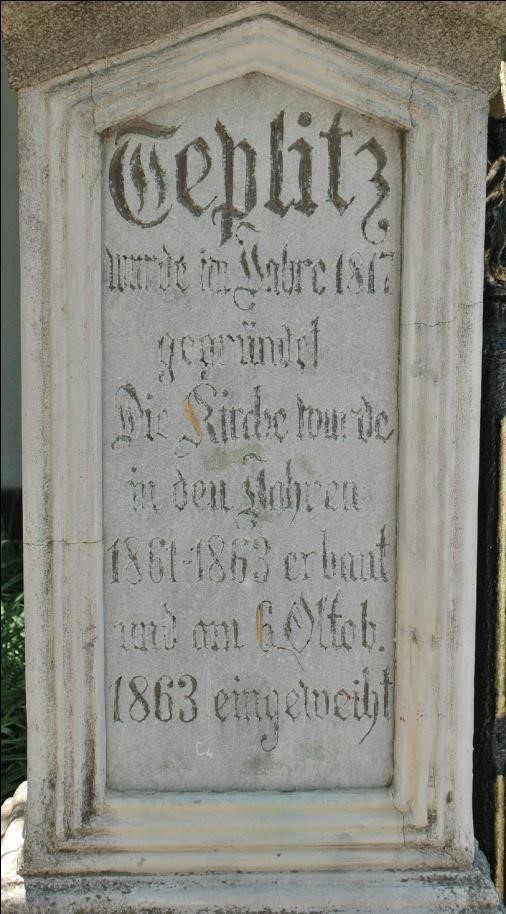 Teplitz
wurde im Jahre 1817
gegründet
Die Kirche wurde
in den Jahren
1861-1863 erbaut
und am 6 Oktob.
1863 eingeweiht